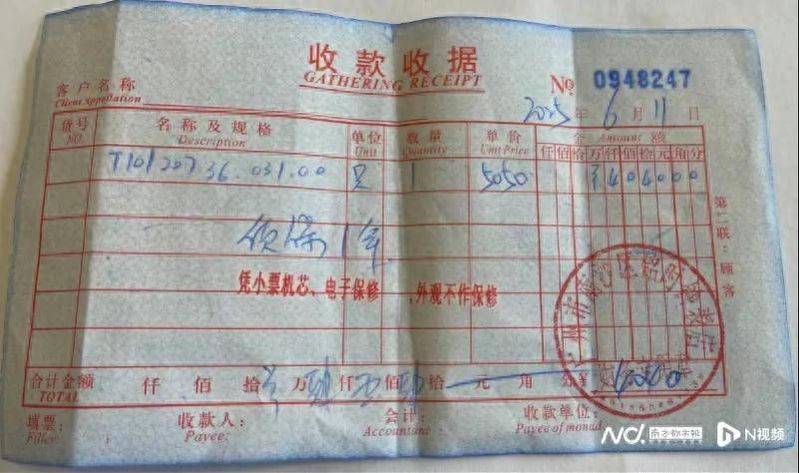 收款收据
GATHERING RECEIPT
No 0948247
客户名称
Client Appellation
2025年 6月 11日
货号 名称及规格 单位 数量 单价 金 额
NO. Description Unit Quantity Unit Price Amount
仟 佰 拾 万 仟 佰 拾 元 角 分
T101207 36.031.00 只 1 5050 ¥404000
保 1年
凭小票机芯、电子保修,外观不作保修
第二联:顾客
合计金额 仟 佰 拾 万 仟 佰 拾 元 角 分
TOTAL
填票: 收款人: 会计: 收款单位:
Filler: Payee: Accountant:
N视频